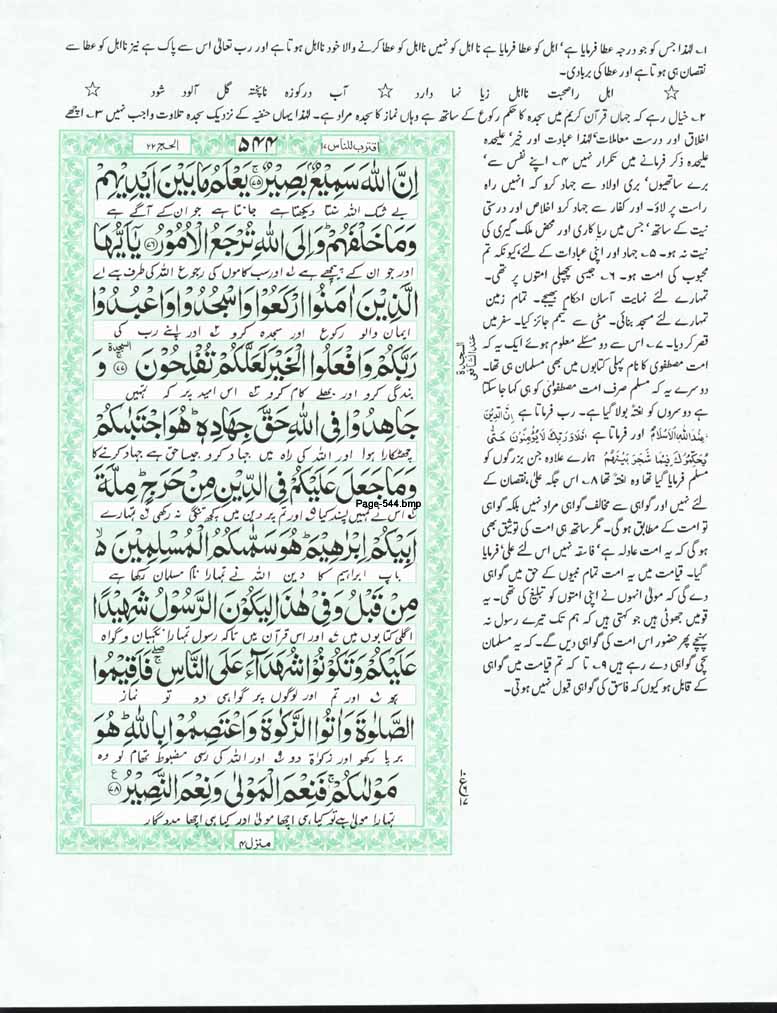 ۱۔ لہٰذا جس کو جو درجہ عطا فرمایا ہے، اہل کو عطا فرمایا ہے نا اہل کو نہیں نااہل کو عطا کرنے والا خود نااہل ہوتا ہے اور رب تعالیٰ اس سے پاک ہے نیز نااہل کو عطا سے
نقصان ہی ہوتا ہے اور عطا کی بربادی۔
☆ اہل راصحبت نااہل زیا نما دارد ☆ آب درکوزہ ناپختہ گل آلود شود ☆
۲۔ خیال رہے کہ جہاں قرآن کریم میں سجدہ کا حکم رکوع کے ساتھ ہے وہاں نماز کا سجدہ مراد ہے۔ لہٰذا یہاں حنفیہ کے نزدیک سجدہ تلاوت واجب نہیں ۳۔ اچھے
اخلاق اور درست معاملات، لہٰذا عبادت اور خیر، علیحدہ
علیحدہ ذکر فرمانے میں تکرار نہیں ۴۔ اپنے نفس سے،
برے ساتھیوں، بری اولاد سے جہاد کرو کہ انہیں راہ
راست پر لاؤ۔ اور کفار سے جہاد کرو اخلاص اور درستی
نیت کے ساتھ، جس میں ریا کاری اور محض ملک گیری کی
نیت نہ ہو۔ ۵۔ جہاد اور اپنی عبادات کے لئے، کیونکہ تم
محبوب کی امت ہو۔ ۶۔ جیسی پچھلی امتوں پر تھی۔
تمہارے لئے نہایت آسان احکام بھیجے۔ تمام زمین
تمہارے لئے مسجد بنائی۔ مٹی سے تیمم جائز کیا۔ سفر میں
قصر کر دیا۔ ۷۔ اس سے دو مسئلے معلوم ہوئے ایک یہ کہ
امت مصطفوی کا نام پہلی کتابوں میں بھی مسلمان ہی تھا۔
دوسرے یہ کہ مسلم صرف امت مصطفوی کو ہی کہا جا سکتا
ہے دوسروں کو لغتہً بولا گیا ہے۔ رب فرماتا ہے اِنَّ الدِّیْنَ
عِنْدَ اللّٰهِ الْاِسْلَامُ اور فرماتا ہے فَلَا وَرَبِّكَ لَا یُؤْمِنُوْنَ حَتّٰی
یُحَكِّمُوْكَ فِیْمَا شَجَرَ بَیْنَهُمْ ہمارے علاوہ جن بزرگوں کو
مسلم فرمایا گیا تھا وہ لغتہً تھا ۸۔ اس جگہ علیٰ نقصان کے
لئے نہیں اور گواہی سے مخالف گواہی مراد نہیں بلکہ گواہی
تو امت کے مطابق ہو گی۔ مگر ساتھ ہی امت کی توثیق بھی
ہو گی کہ یہ امت عادلہ ہے، فاسقہ نہیں اس لئے علیٰ فرمایا
گیا۔ قیامت میں یہ امت تمام نبیوں کے حق میں گواہی
دے گی کہ مولیٰ انہوں نے اپنی امتوں کو تبلیغ کی تھی۔ یہ
قومیں جھوٹی ہیں جو کہتی ہیں کہ ہم تک تیرے رسول نہ
پہنچے پھر حضور اس امت کی گواہی دیں گے۔ کہ یہ مسلمان
سچی گواہی دے رہے ہیں ۹۔ تا کہ تم قیامت میں گواہی
کے قابل ہو کیوں کہ فاسق کی گواہی قبول نہیں ہوتی۔
اقترب للناس ۱۷ ۵۴۴ الحج ۲۲
اِنَّ اللّٰهَ سَمِیْعٌۢ بَصِیْرٌۚ۝۷۵ یَعْلَمُ مَا بَیْنَ اَیْدِیْهِمْ
بے شک اللہ سنتا دیکھتا ہے جانتا ہے جو ان کے آگے ہے
وَ مَا خَلْفَهُمْ وَ اِلَی اللّٰهِ تُرْجَعُ الْاُمُوْرُ۝۷۶ یٰۤاَیُّهَا
اور جو ان کے پیچھے ہے اور سب کاموں کی رجوع اللہ کی طرف ہے اے
الَّذِیْنَ اٰمَنُوا ارْكَعُوْا وَ اسْجُدُوْا وَ اعْبُدُوْا
ایمان والو رکوع اور سجدہ کرو اور اپنے رب کی
رَبَّكُمْ وَ افْعَلُوا الْخَیْرَ لَعَلَّكُمْ تُفْلِحُوْنَ۝۷۷ وَ
بندگی کرو اور بھلے کام کرو اس امید پر کہ تمہیں
جَاهِدُوْا فِی اللّٰهِ حَقَّ جِهَادِهٖؕ هُوَ اجْتَبٰىكُمْ
چھٹکارا ہو اور اللہ کی راہ میں جہاد کرو جیسا حق ہے جہاد کرنے کا
وَ مَا جَعَلَ عَلَیْكُمْ فِی الدِّیْنِ مِنْ حَرَجٍؕ مِلَّةَ
اس نے تمہیں پسند کیا اور تم پر دین میں کچھ تنگی نہ رکھی تمہارے
Page-544.bmp
اَبِیْكُمْ اِبْرٰهِیْمَؕ هُوَ سَمّٰىكُمُ الْمُسْلِمِیْنَ
باپ ابراہیم کا دین اللہ نے تمہارا نام مسلمان رکھا ہے
مِنْ قَبْلُ وَ فِیْ هٰذَا لِیَكُوْنَ الرَّسُوْلُ شَهِیْدًا
اگلی کتابوں میں اور اس قرآن میں تاکہ رسول تمہارا نگہبان و گواہ
عَلَیْكُمْ وَ تَكُوْنُوْا شُهَدَآءَ عَلَی النَّاسِ فَاَقِیْمُوا
ہو اور تم اور لوگوں پر گواہی دو تو نماز
الصَّلٰوةَ وَ اٰتُوا الزَّكٰوةَ وَ اعْتَصِمُوْا بِاللّٰهِؕ هُوَ
برپا رکھو اور زکوٰۃ دو اور اللہ کی رسی مضبوط تھام لو وہ
مَوْلٰىكُمْۚ فَنِعْمَ الْمَوْلٰى وَ نِعْمَ النَّصِیْرُ۝۷۸
تمہارا مولیٰ ہے تو کیا ہی اچھا مولیٰ اور کیا ہی اچھا مددگار
منزل ۴
السجدۃ
عند الشافعی